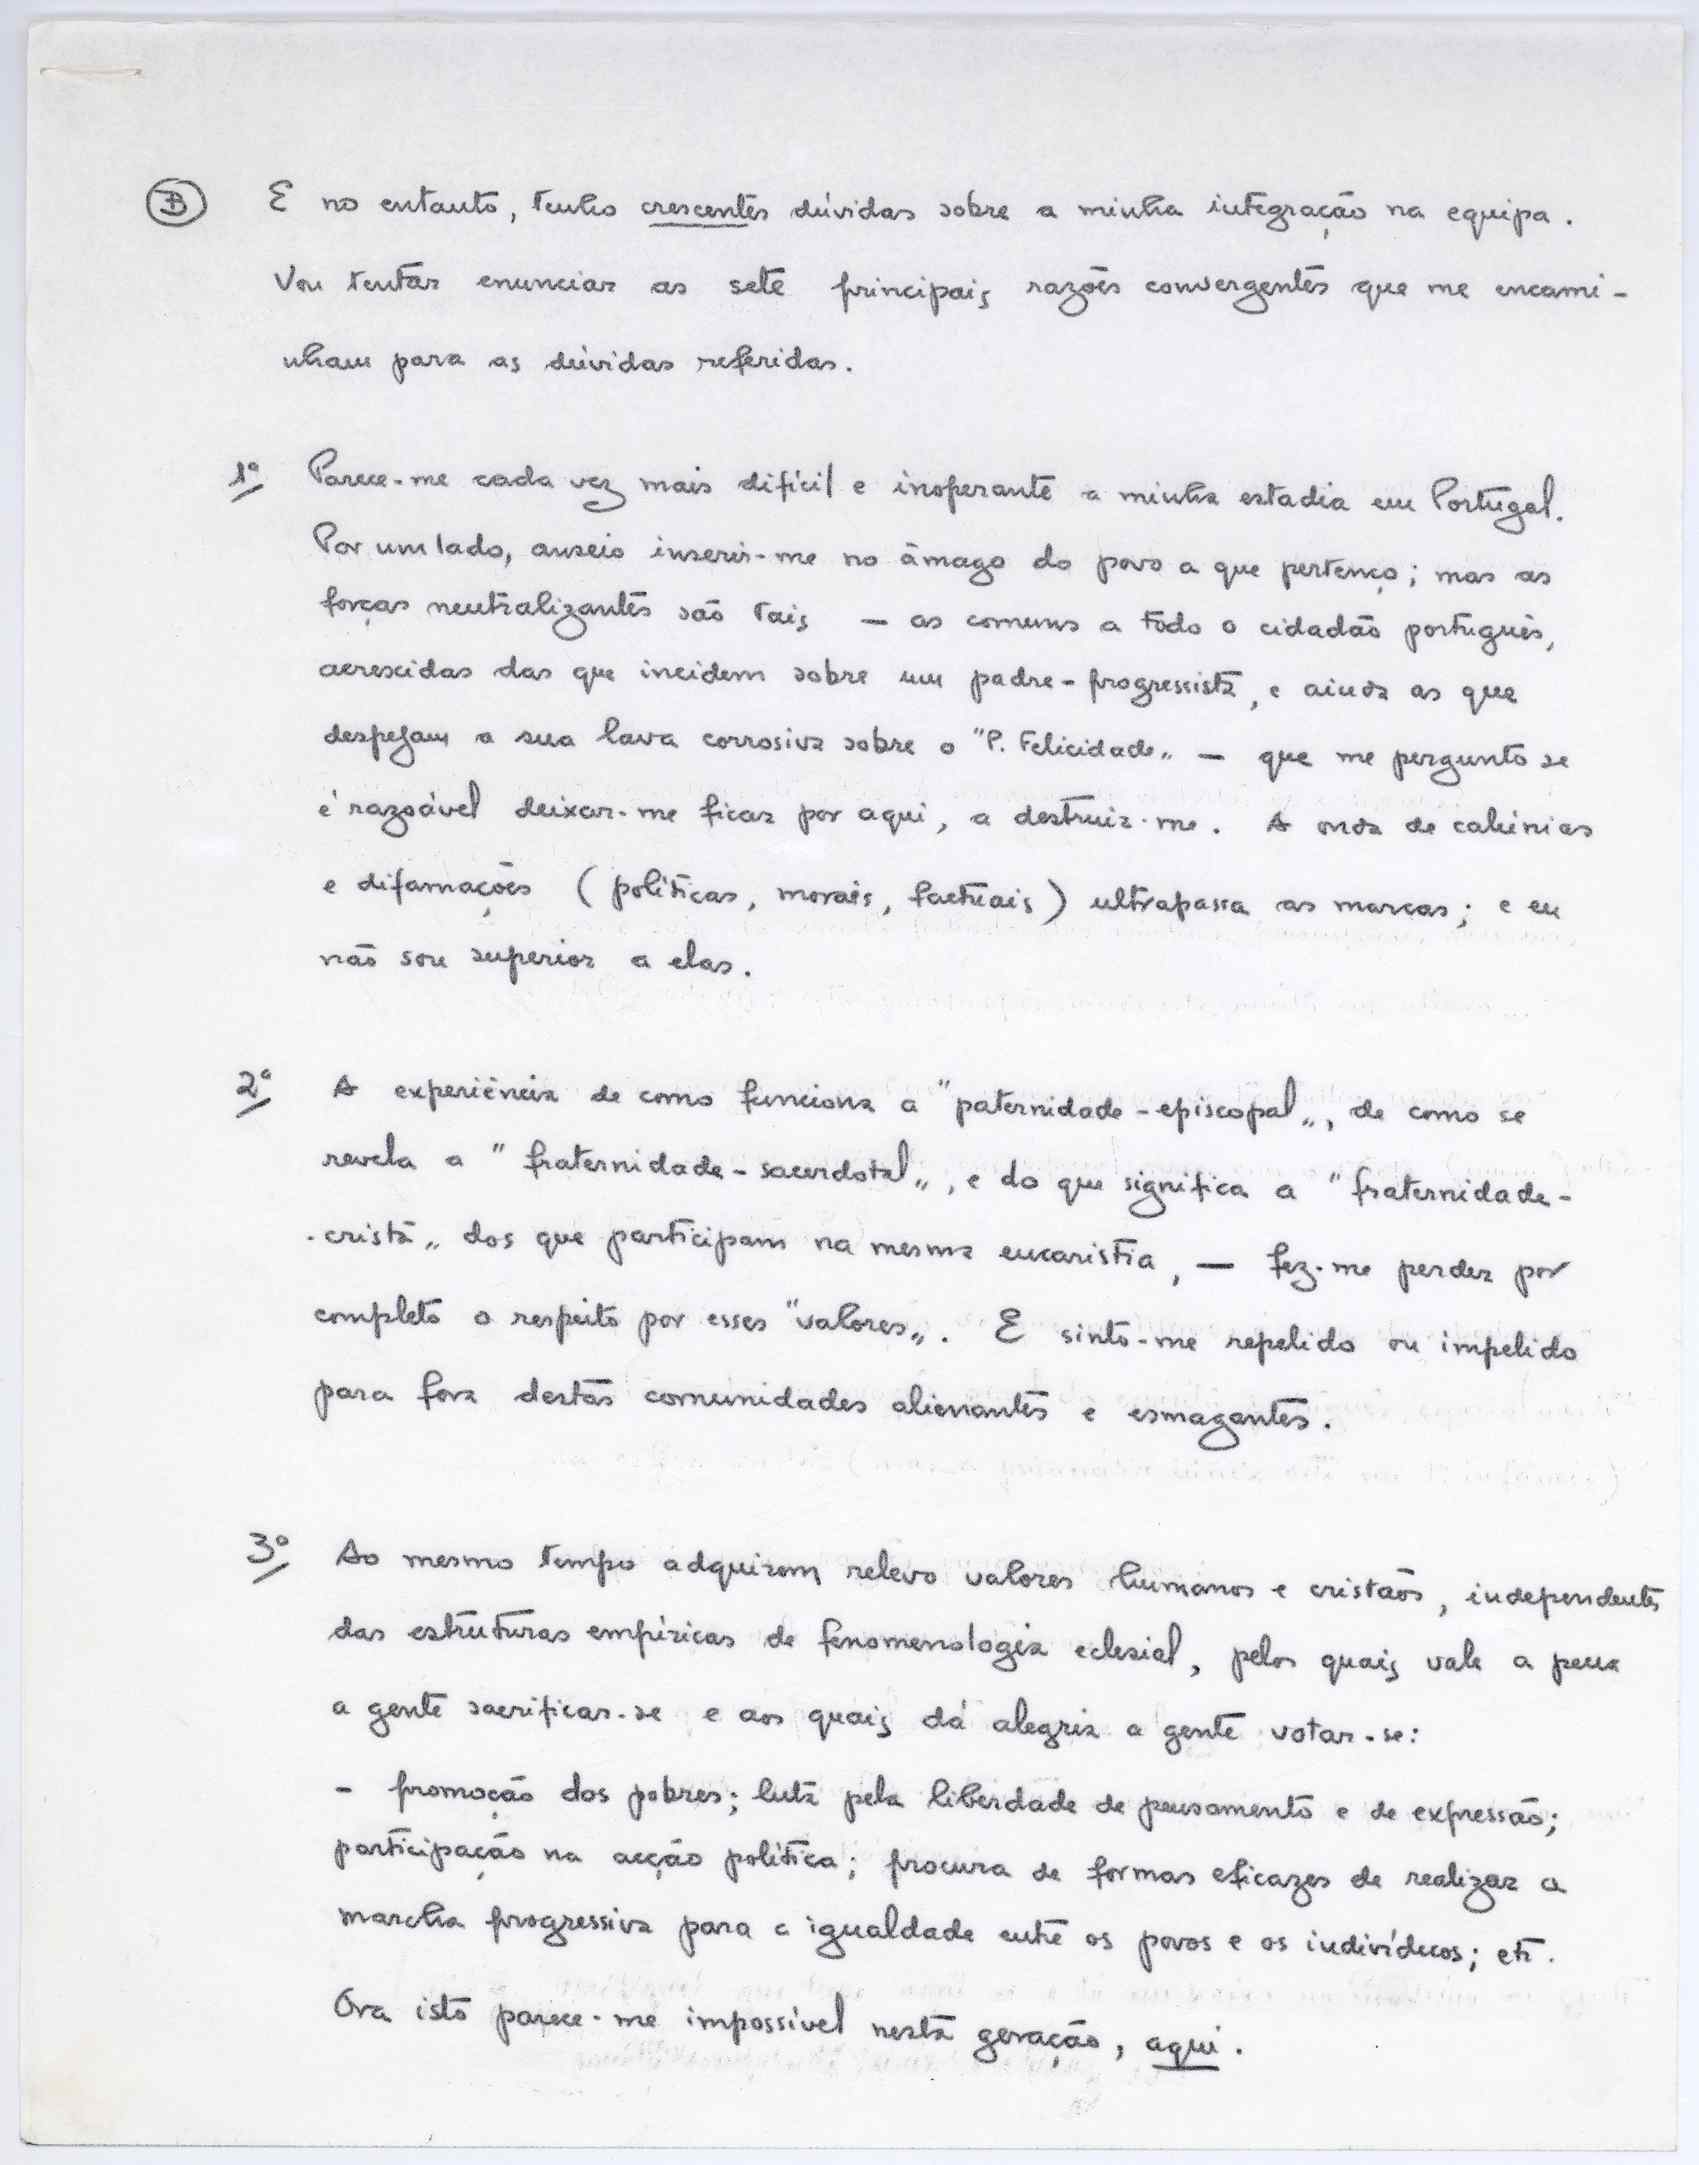 B E no entanto, tenho crescentes dúvidas sobre a minha integração na equipa.
Vou tentar enunciar as sete principais razões convergentes que me encami-
nham para as dúvidas referidas.
1ª Parece-me cada vez mais difícil e inoperante a minha estadia em Portugal.
Por um lado, anseio inserir-me no âmago do povo a que pertenço; mas as
forças neutralizantes são tais — as comuns a todo o cidadão português,
acrescidas das que incidem sobre um padre-progressista, e ainda as que
despejam a sua lava corrosiva sobre o "P. Felicidade" — que me pergunto se
é razoável deixar-me ficar por aqui, a destruir-me. A onda de calúnias
e difamações (políticas, morais, factuais) ultrapassa as marcas; e eu
não sou superior a elas.
2ª A experiência de como funciona a "paternidade-episcopal", de como se
revela a "fraternidade-sacerdotal", e do que significa a "fraternidade-
-cristã" dos que participam na mesma eucaristia, — fez-me perder por
completo o respeito por esses "valores". E sinto-me repelido ou impelido
para fora destas comunidades alienantes e esmagantes.
3º Ao mesmo tempo adquirem relevo valores humanos e cristãos, independentes
das estruturas empíricas de fenomenologia eclesial, pelos quais vale a pena
a gente sacrificar-se e aos quais dá alegria a gente votar-se:
- promoção dos pobres; luta pela liberdade de pensamento e de expressão;
participação na acção política; procura de formas eficazes de realizar a
marcha progressiva para a igualdade entre os povos e os indivíduos; etc.
Ora isto parece-me impossível nesta geração, aqui.